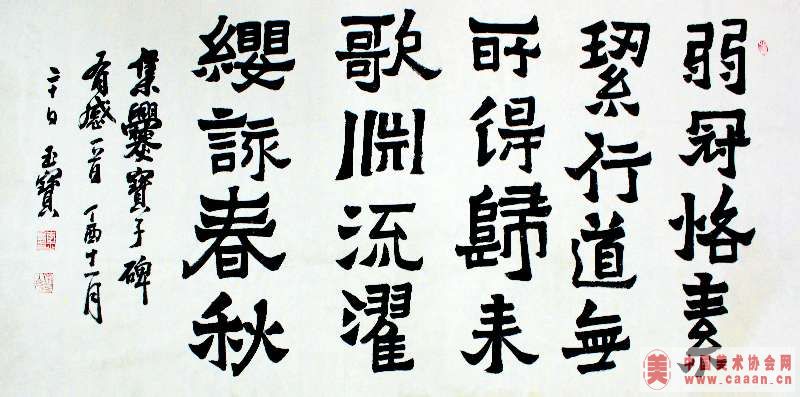 弱冠恪素
絜行道無
所得歸来
歌淵流濯
纓詠春秋
集爨寶子碑
有感一首 丁酉十一月
二十日 玉寶
美
中国美术协会网
www.caaan.cn